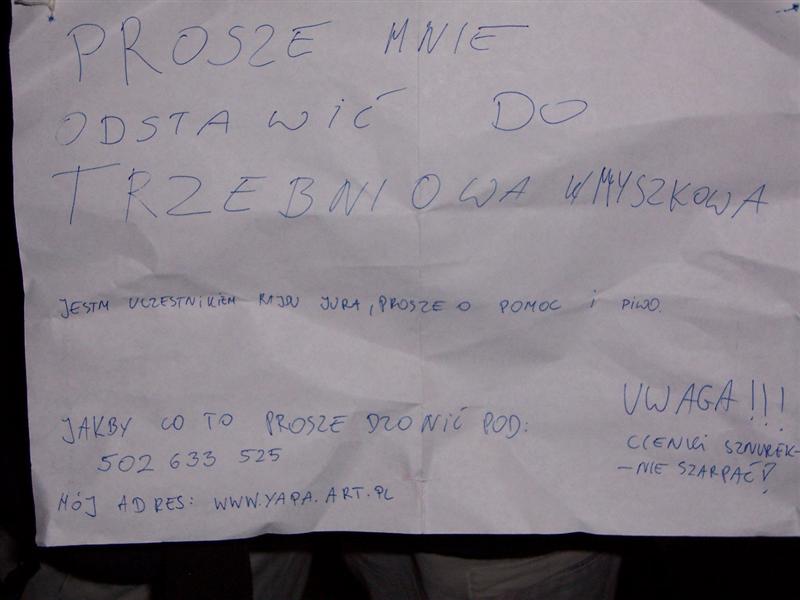 PROSZE MNIE
ODSTAWIĆ DO
TRZEBNIOWA W MYSZKOWA
JESTM UCZESTNIKIEM RAJDU JURA, PROSZE O POMOC I PIWO.
JAKBY CO TO PROSZE DZONIĆ POD:
502 633 525
MÓJ ADRES: WWW.YAPA.ART.PL
UWAGA!!!
CIENKI SZNUREK-
-NIE SZARPAĆ!